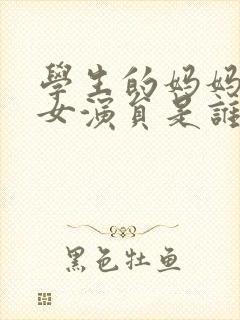 學生的妈妈
女演員是誰
黑色牡鱼